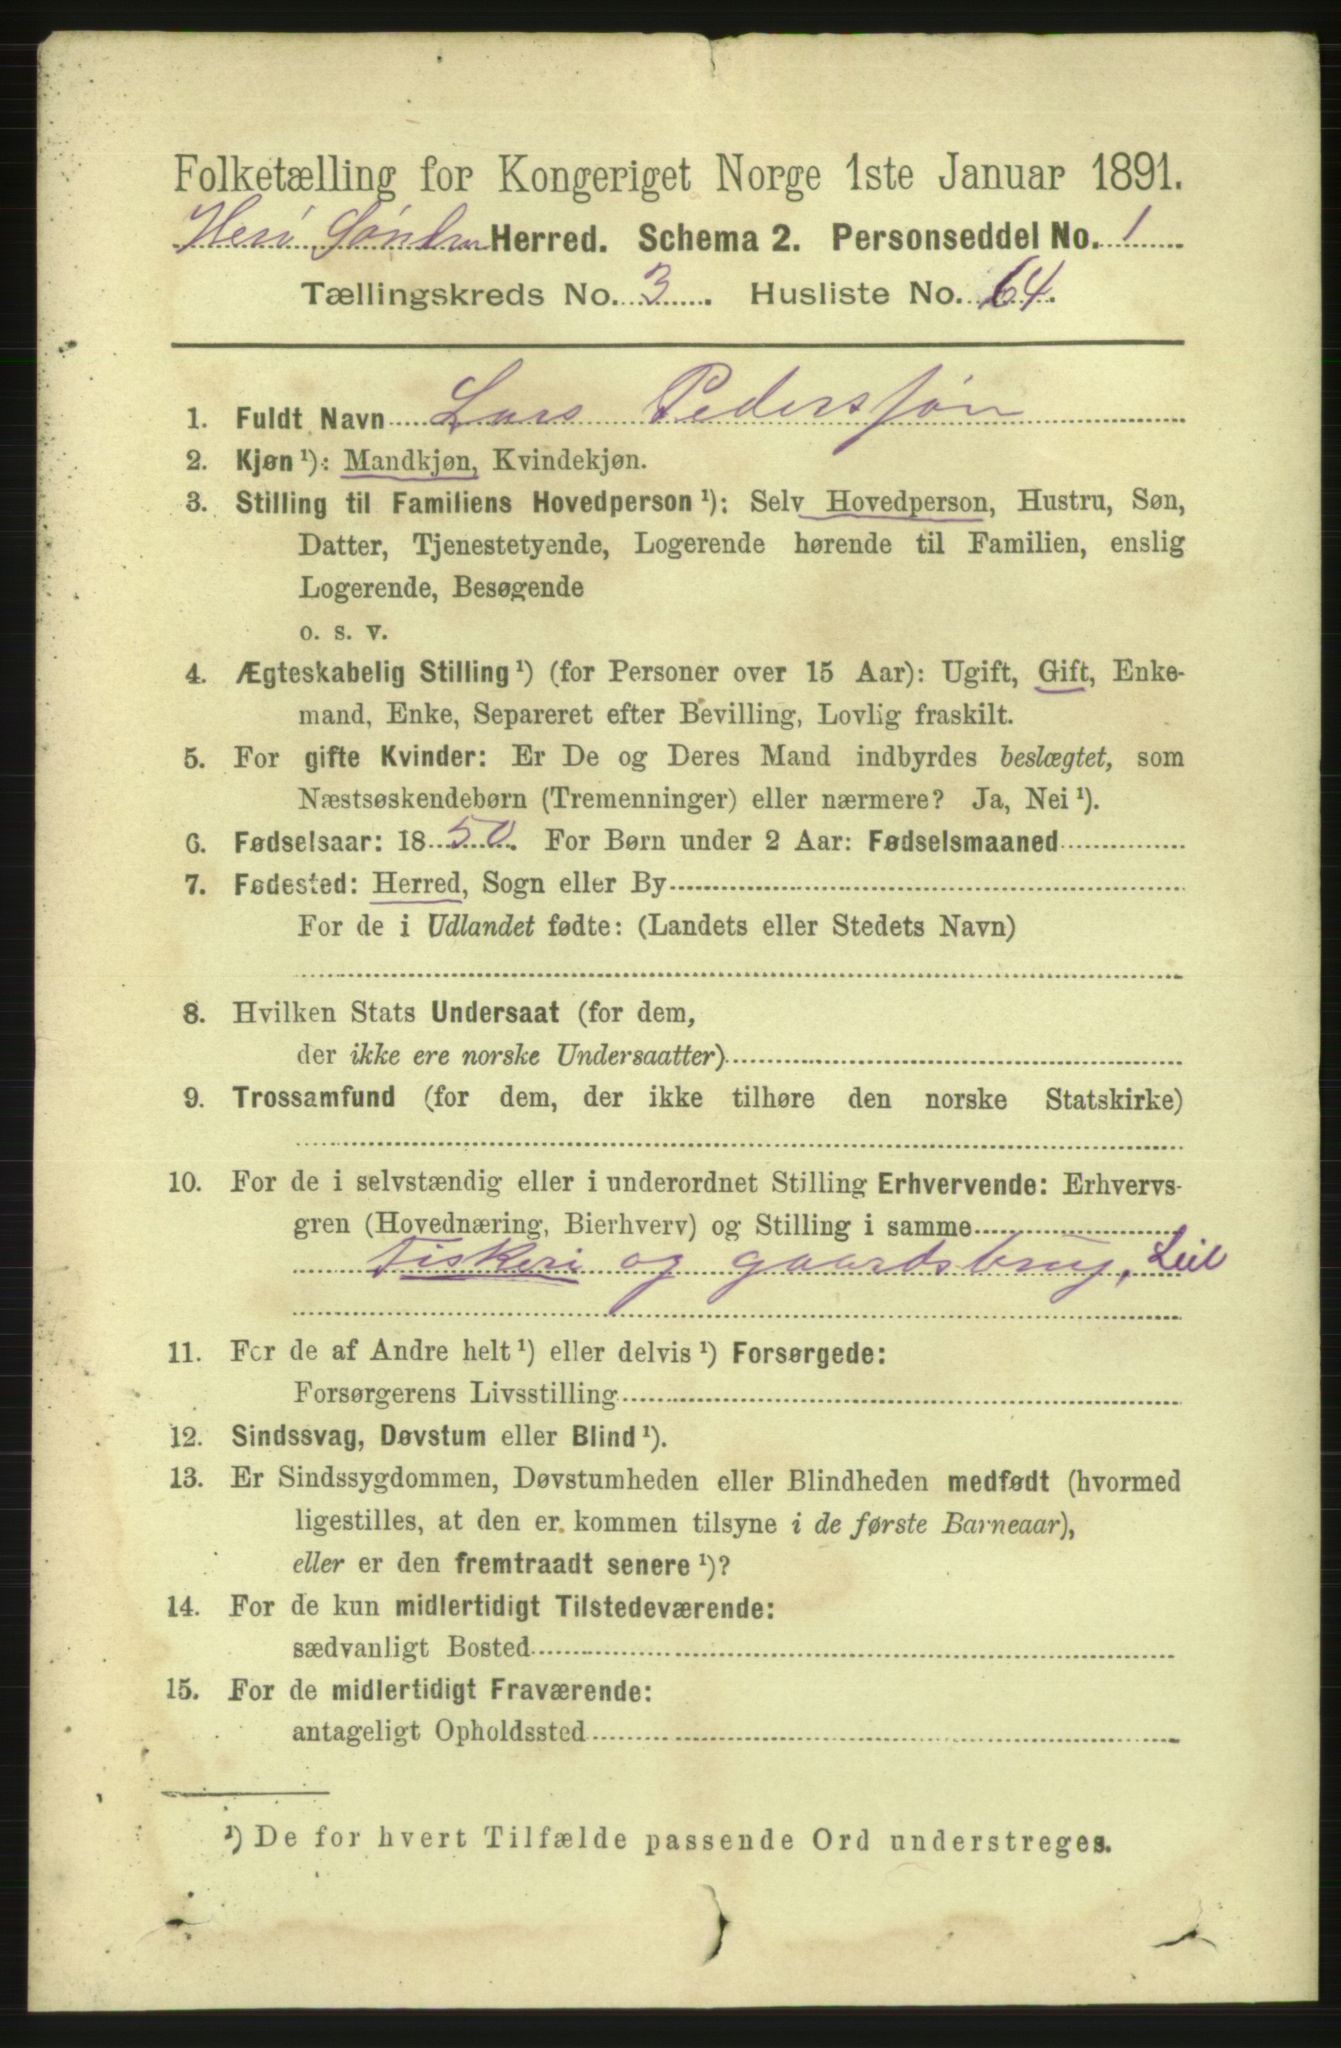 Folketælling for Kongeriget Norge 1ste Januar 1891.
Herø Søndre Herred. Schema 2. Personseddel No. 1
Tællingskreds No. 3. Husliste No. 64.
1. Fuldt Navn Lars Pederssøn
2. Kjøn ¹): Mandkjøn, Kvindekjøn.
3. Stilling til Familiens Hovedperson ¹): Selv Hovedperson, Hustru, Søn,
Datter, Tjenestetyende, Logerende hørende til Familien, enslig
Logerende, Besøgende
o. s. v.
4. Ægteskabelig Stilling ¹) (for Personer over 15 Aar): Ugift, Gift, Enke-
mand, Enke, Separeret efter Bevilling, Lovlig fraskilt.
5. For gifte Kvinder: Er De og Deres Mand indbyrdes beslægtet, som
Næstsøskendebørn (Tremenninger) eller nærmere? Ja, Nei ¹).
6. Fødselsaar: 1850. For Børn under 2 Aar: Fødselsmaaned
7. Fødested: Herred, Sogn eller By
For de i Udlandet fødte: (Landets eller Stedets Navn)
8. Hvilken Stats Undersaat (for dem,
der ikke ere norske Undersaatter)
9. Trossamfund (for dem, der ikke tilhøre den norske Statskirke)
10. For de i selvstændig eller i underordnet Stilling Erhvervende: Erhvervs-
gren (Hovednæring, Bierhverv) og Stilling i samme
Fiskeri og gaardsbrug, Leil
11. For de af Andre helt ¹) eller delvis ¹) Forsørgede:
Forsørgerens Livsstilling
12. Sindssvag, Døvstum eller Blind ¹).
13. Er Sindssygdommen, Døvstumheden eller Blindheden medfødt (hvormed
ligestilles, at den er kommen tilsyne i de første Barneaar),
eller er den fremtraadt senere ¹)?
14. For de kun midlertidigt Tilstedeværende:
sædvanligt Bosted
15. For de midlertidigt Fraværende:
antageligt Opholdssted
¹) De for hvert Tilfælde passende Ord understreges.